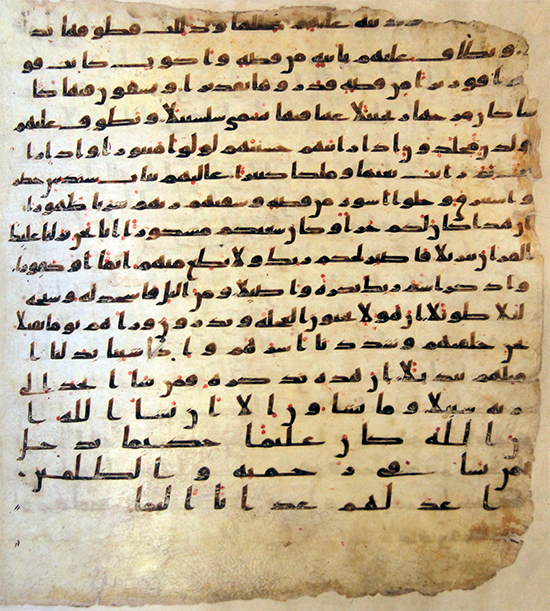 ودانيه عليهم ظللها وذللت قطوفها تذ
ويطاف عليهم بانيه من فضه واكوب كانت قو
قواريرا من فضه قدروها تقديرا ويسقون فيها كا
سا كان مزجها زنجبيلا عينا فيها تسمى سلسبيلا ويطوف عليهم
ولدن مخلدون اذا رايتهم حسبتهم لولوا منثورا واذا را
يت ثم رايت نعيما وملكا كبيرا عاليهم ثياب سندس خضر
واستبرق وحلوا اساور من فضه وسقيهم ربهم شرابا طهورا
ان هذا كان لكم جزا وكان سعيكم مشكورا انا نحن نزلنا عليك
القران تنزيلا فاصبر لحكم ربك ولا تطع منهم اثما او كفورا
واذكر اسم ربك بكره واصيلا ومن اليل فاسجد له وسبحه
ليلا طويلا ان هولا يحبون العجله ويذرون وراهم يوما ثقيلا
نحن خلقنهم وشددنا اسرهم واذا شينا بدلنا ا
مثلهم تبديلا ان هذه تذكره فمن شا اتخذ الى
ربه سبيلا وما تشاون الا ان يشا الله ا
ن الله كان عليما حكيما يدخل
من يشا في رحمته والظلمين
اعد لهم عذابا اليما